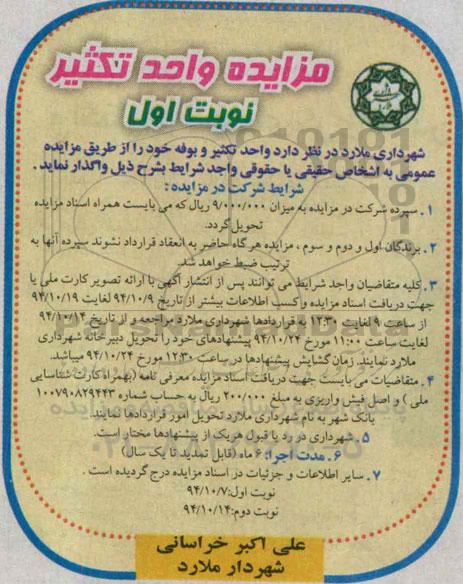 مزایده واحد تکثیر
نوبت اول
شهرداری ملارد در نظر دارد واحد تکثیر و بوفه خود را از طریق مزایده
عمومی به اشخاص حقیقی یا حقوقی واجد شرایط بشرح ذیل واگذار نماید .
شرایط شرکت در مزایده :
۱ . سپرده شرکت در مزایده به میزان ۹/۰۰۰/۰۰۰ ریال که می بایست همراه اسناد مزایده
تحویل گردد.
۲ . برندگان اول و دوم و سوم ، مزایده هر گاه حاضر به انعقاد قرارداد نشوند سپرده آنها به
ترتیب ضبط خواهد شد.
۳ . کلیه متقاضیان واجد شرایط می توانند پس از انتشار آگهی با ارائه تصویر کارت ملی یا
جهت دریافت اسناد مزایده و کسب اطلاعات بیشتر از تاریخ ۹۴/۱۰/۹ لغایت ۹۴/۱۰/۱۹
از ساعت ۹ لغایت ۱۲:۳۰ به قراردادها شهرداری ملارد مراجعه و از تاریخ ۹۴/۱۰/۱۴
لغایت ساعت ۱۱:۰۰ مورخ ۹۴/۱۰/۲۴ پیشنهادهای خود را تحویل دبیرخانه شهرداری
ملارد نمایند. زمان گشایش پیشنهادها در ساعت ۱۲:۳۰ مورخ ۹۴/۱۰/۲۴ میباشد.
۴ . متقاضیات می بایست جهت دریافت اسناد مزایده معرفی نامه (بهمراه کارت شناسایی
ملی ) و اصل فیش واریزی به مبلغ ۲۰۰/۰۰۰ ریال به حساب شماره ۱۰۰۷۹۰۸۲۹۴۴۳
بانک شهر به نام شهرداری ملارد تحویل امور قراردادها نمایند.
۵ . شهرداری در رد یا قبول هریک از پیشنهادها مختار است.
۶ . مدت اجرا: ۶ ماه (قابل تمدید تا یک سال)
۷ . سایر اطلاعات و جزئیات در اسناد مزایده درج گردیده است .
نوبت اول:۹۴/۱۰/۷
نوبت دوم:۹۴/۱۰/۱۴
علی اکبر خراسانی
شهردار ملارد